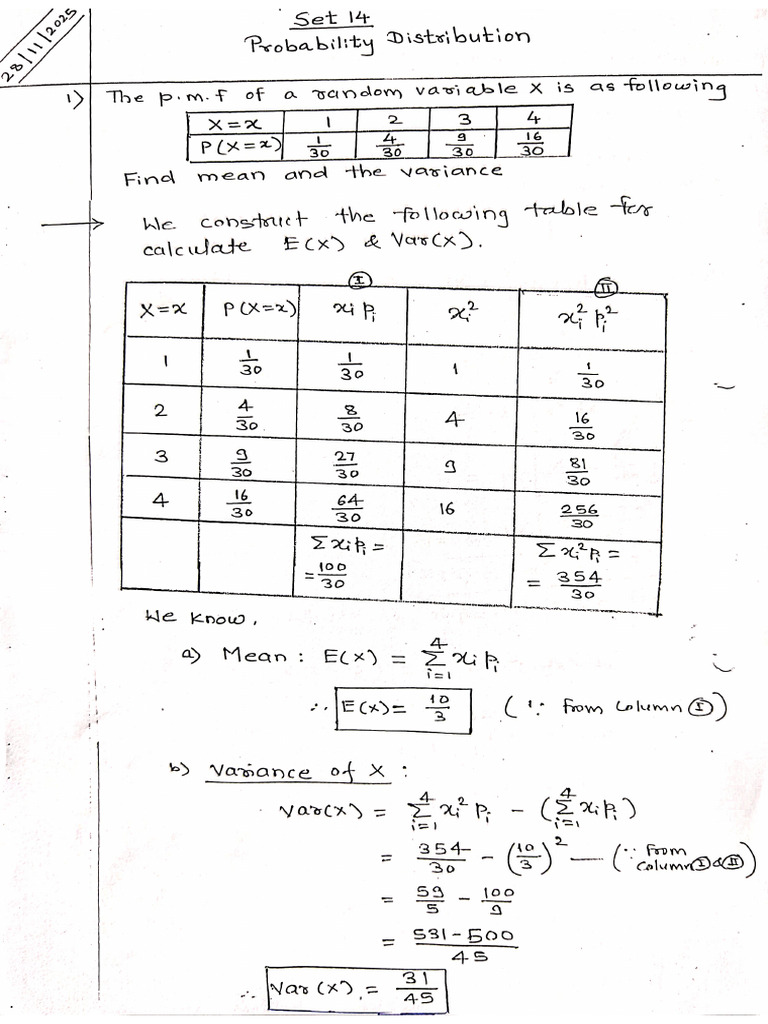 28/11/2025
Set 14
Probability Distribution
1) The p.m.f of a random variable X is as following
X=x 1 2 3 4
P(X=x) 1/30 4/30 9/30 16/30
Find mean and the variance
→ We construct the following table for
calculate E(X) & Var(X).
Ⅰ Ⅱ
X=x P(X=x) xᵢ pᵢ xᵢ² xᵢ² pᵢ²
1 1/30 1/30 1 1/30
2 4/30 8/30 4 16/30
3 9/30 27/30 9 81/30
4 16/30 64/30 16 256/30
Σxᵢpᵢ = Σxᵢ²pᵢ =
= 100/30 = 354/30
We know,
a) Mean : E(X) = Σᵢ₌₁⁴ xᵢ pᵢ
∴ E(X) = 10/3 (∵ From column Ⅰ)
b) Variance of X :
Var(X) = Σᵢ₌₁⁴ xᵢ² pᵢ - (Σᵢ₌₁⁴ xᵢ pᵢ)
= 354/30 - (10/3)² — (∵ From column Ⅰ & Ⅱ)
= 59/5 - 100/9
= 531-500/45
∴ Var(X) = 31/45